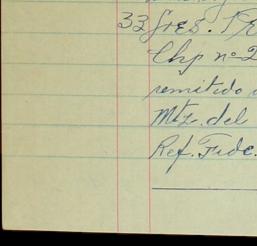 33 Sres.
Chp nº 2
remitido
Mtz. del
Ref. Fide.